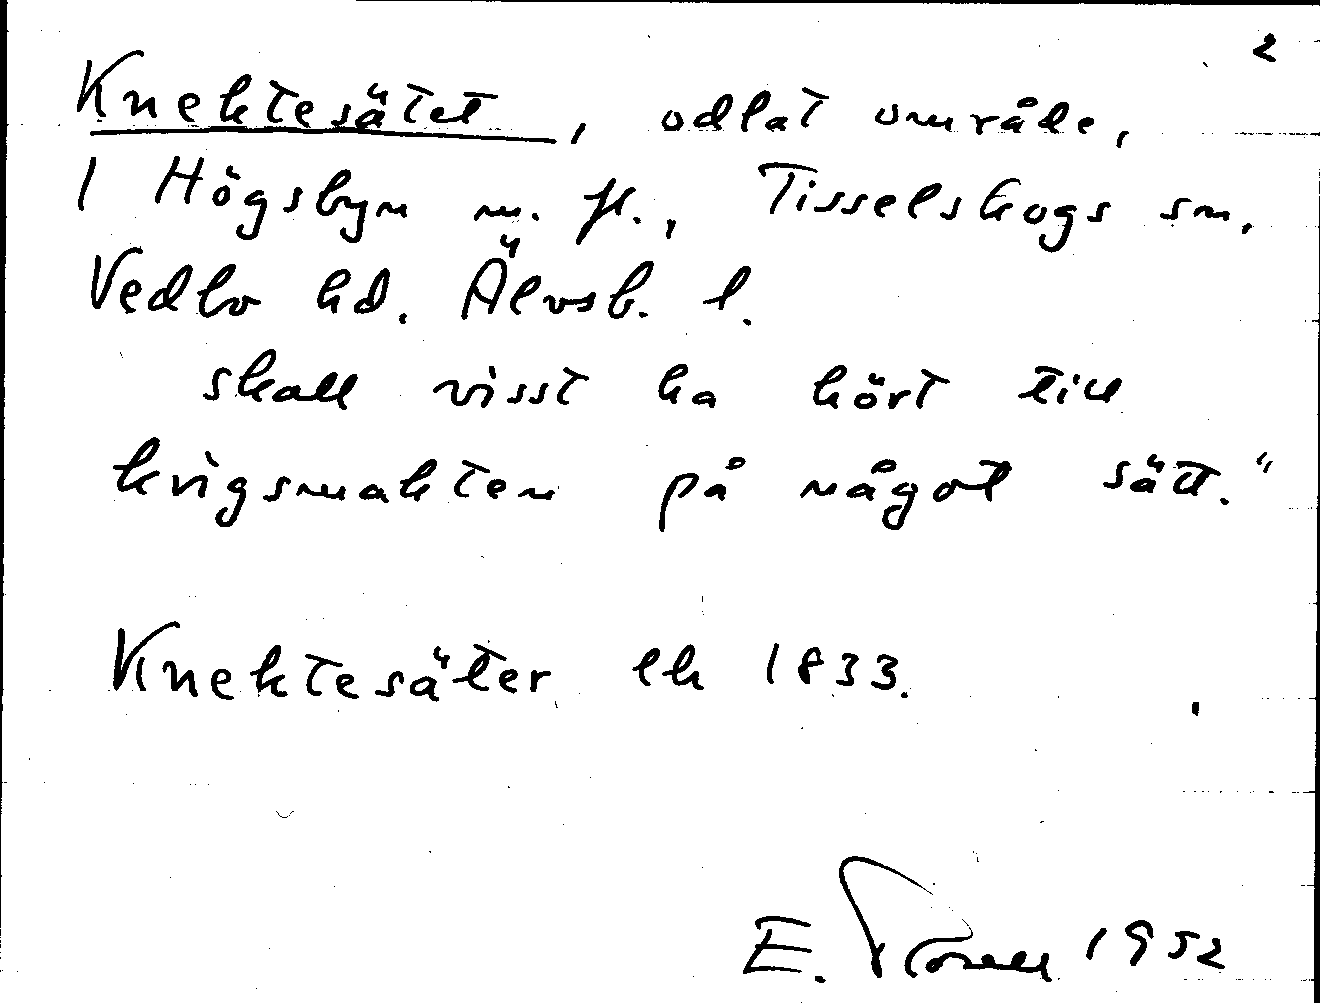 2
Knektesätet, odlat område,
1 Högsbyn m. fl., Tisselskogs sn.
Vedbo hd. Älvsb. l.
skall visst ha hört till
krigsmakten på något sätt."
Knektesäter ek 1833.
E. 1952